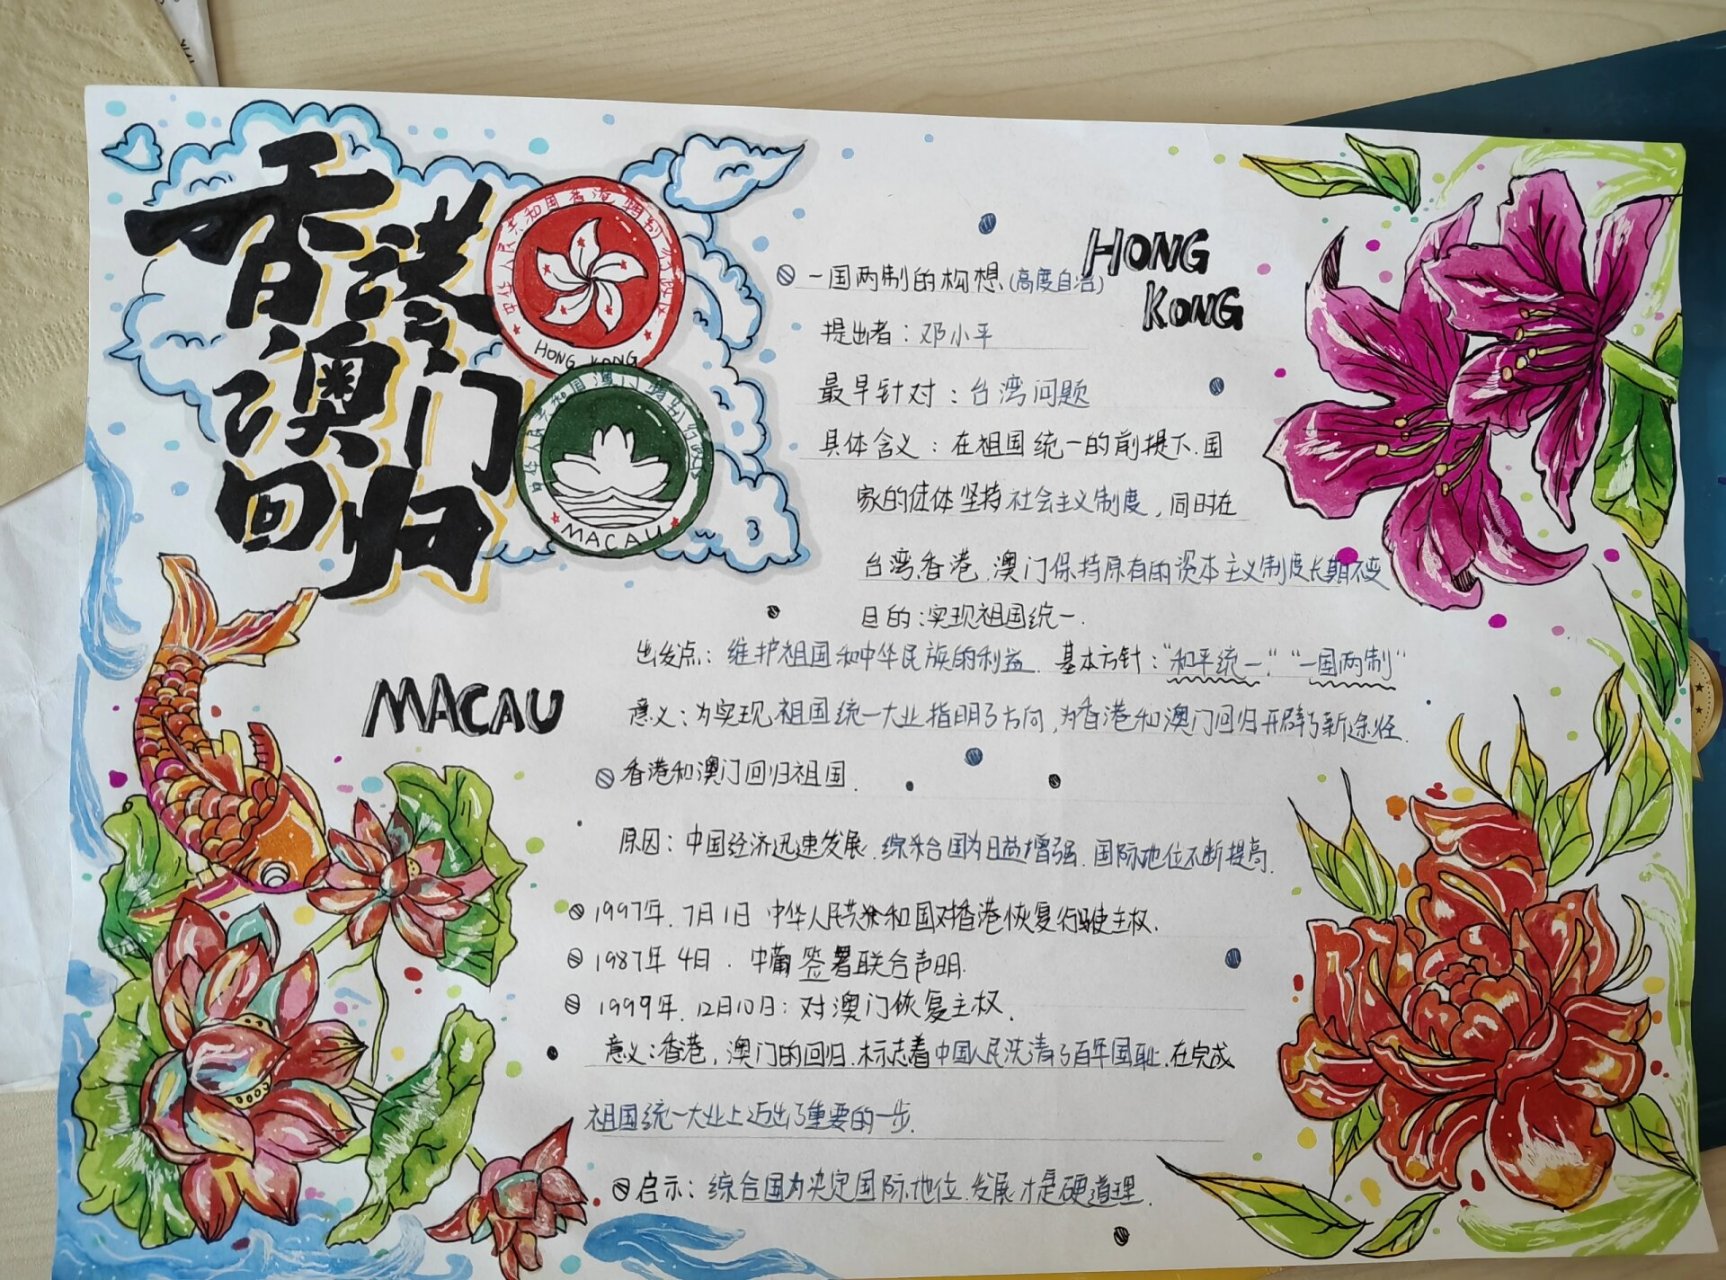 香港
澳门
回归
中华人民共和国香港特别行政区
HONG KONG
中华人民共和国澳门特别行政区
MACAU
HONG
KONG
一国两制的构想(高度自治)
提出者：邓小平
最早针对：台湾问题
具体含义：在祖国统一的前提下.国
家的住体坚持社会主义制度，同时在
台湾.香港.澳门保持原有的资本主义制度长期不变
目的：实现祖国统一.
出发点：维护祖国和中华民族的利益. 基本方针：“和平统一”“一国两制”
MACAU
意义：为实现祖国统一大业指明了方向，为香港和澳门回归开辟了新途径.
香港和澳门回归祖国.
原因：中国经济迅速发展.综合国力日益增强.国际地位不断提高.
1997年.7月1日 中华人民共和国对香港恢复行驶主权.
1987年4日.中葡签署联合声明.
1999年.12月10日：对澳门恢复主权.
意义：香港，澳门的回归.标志着中国人民洗清了百年国耻.在完成
祖国统一大业上迈出了重要的一步.
启示：综合国力决定国际地位.发展才是硬道理.